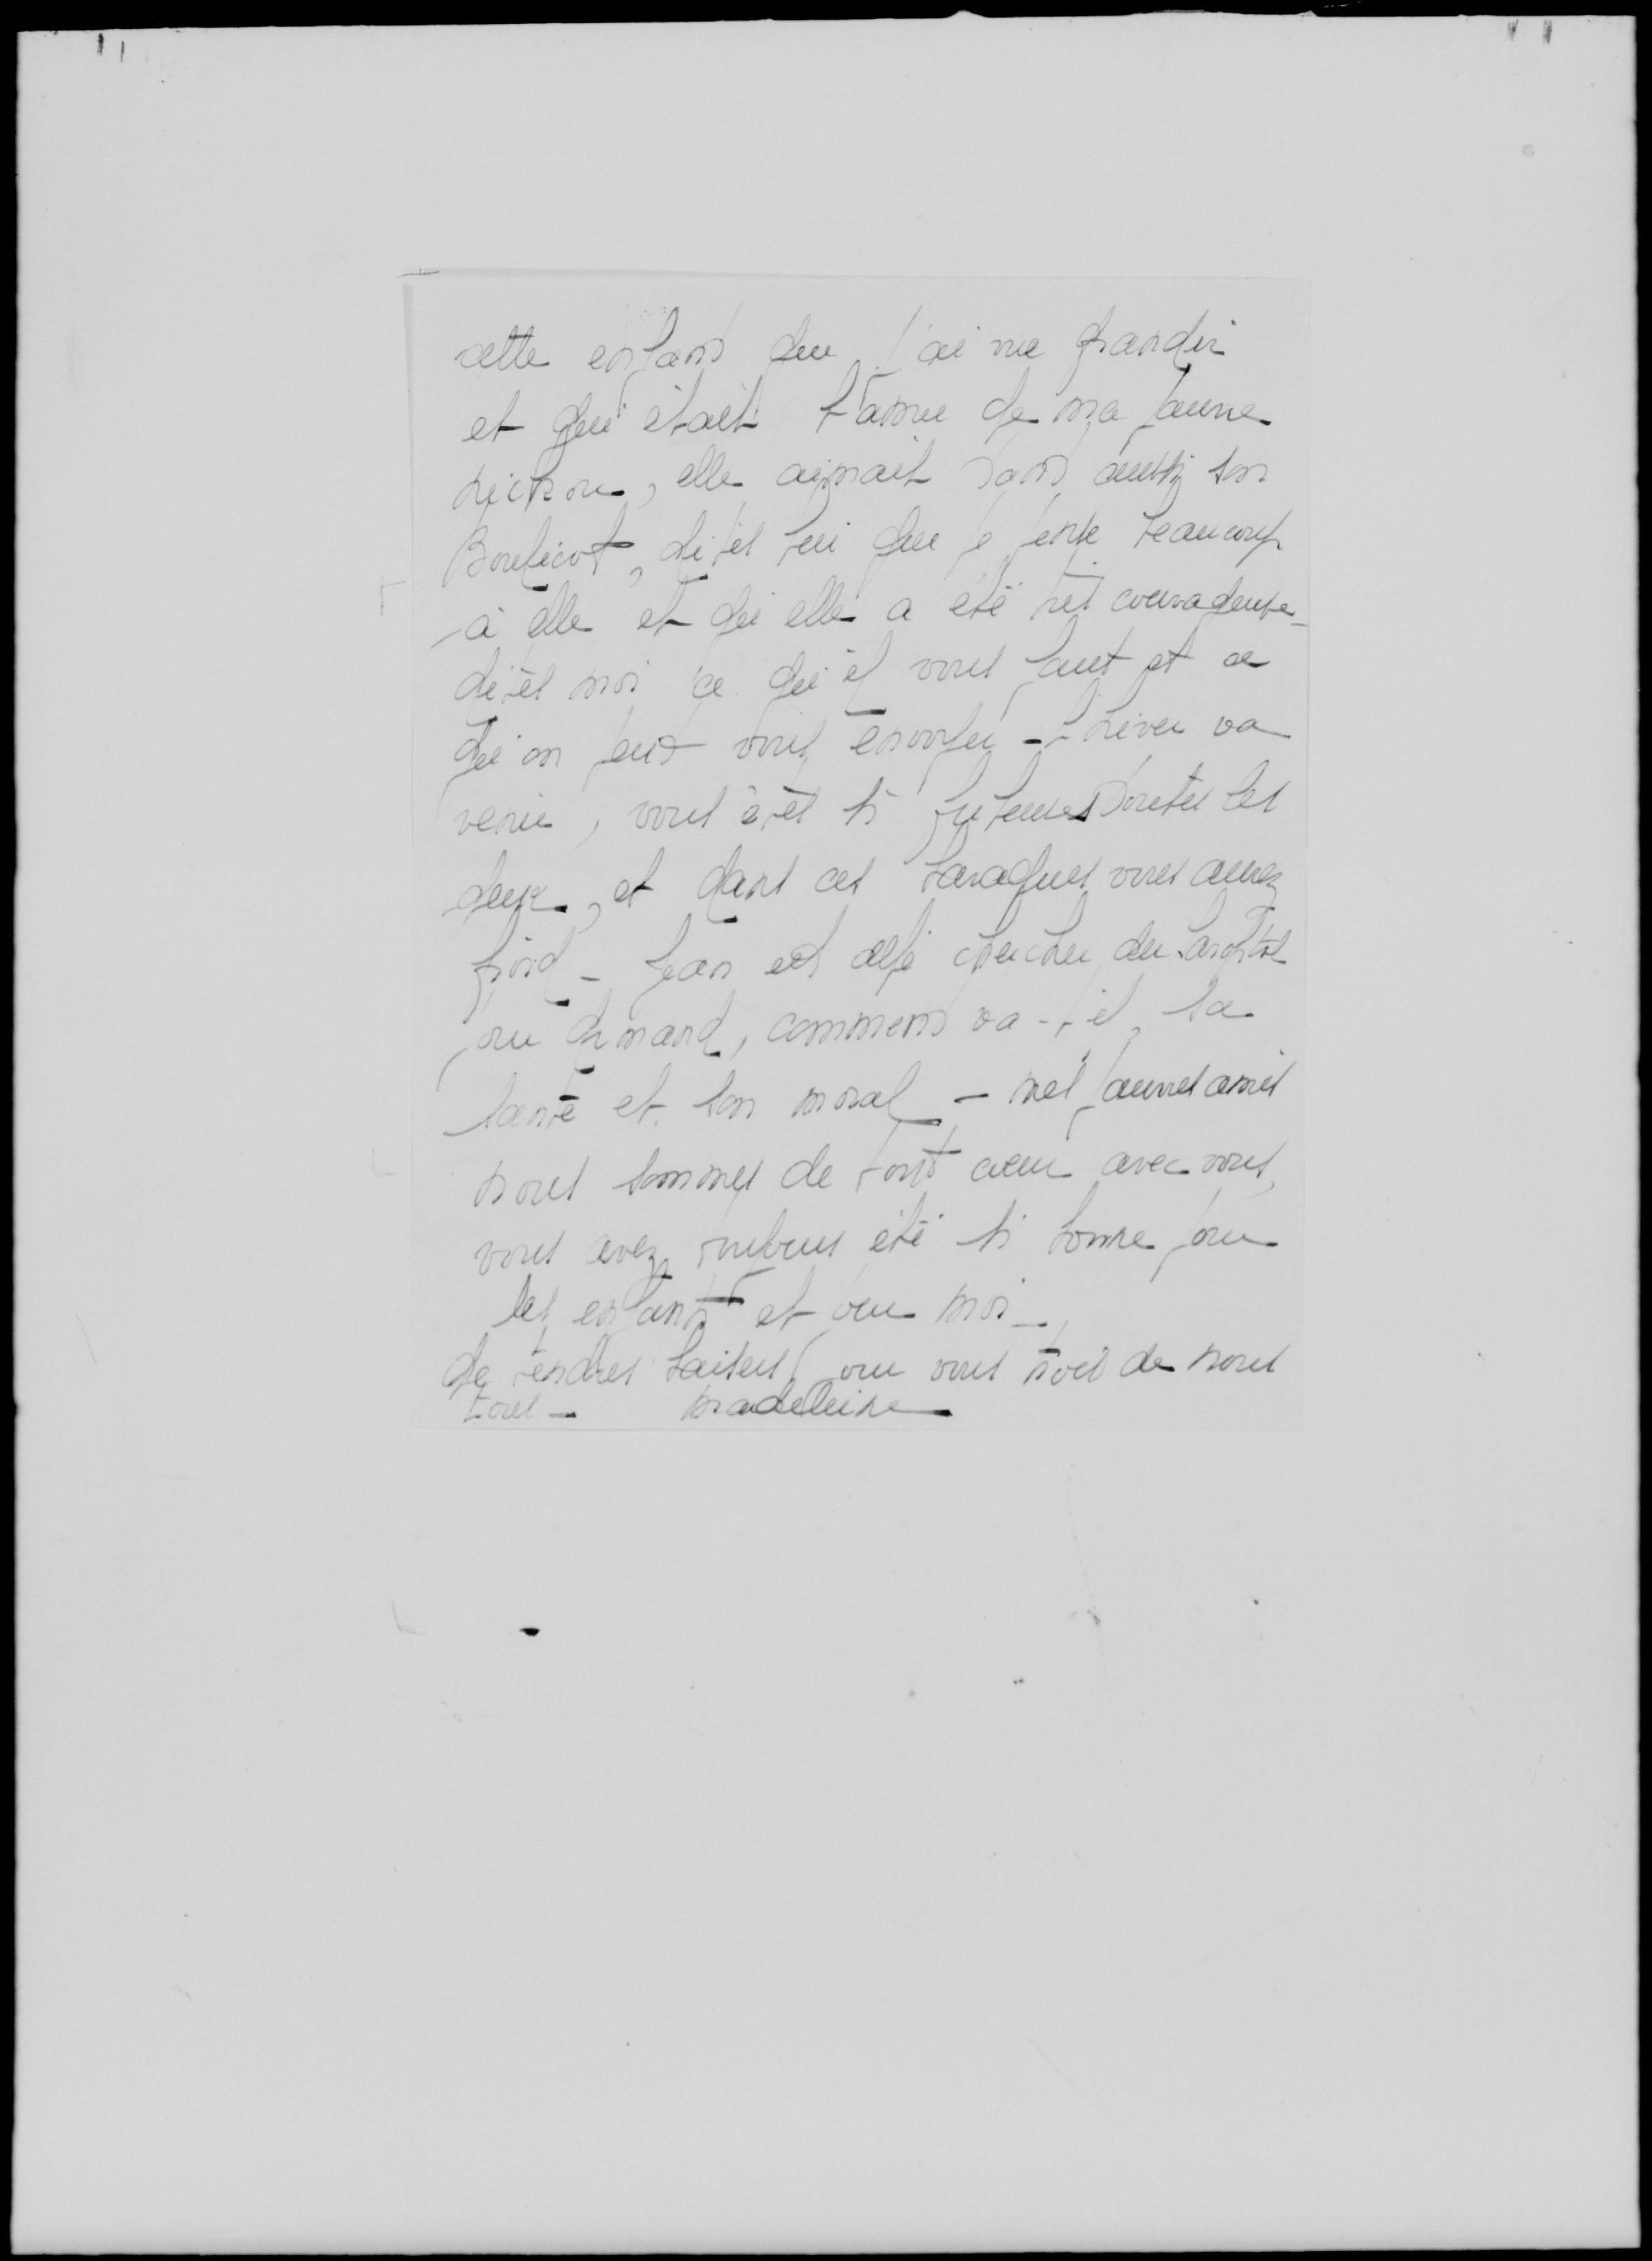 cette enfant que j'ai vue grandir
et qui était l'amie de ma pauvre
elle aimait tant aussi son
dites lui que je pense beaucoup
à elle et qu'elle a été très courageuse -
dites moi ce qu'il vous faut et ce
qu'on peut vous envoyer - l'hiver va
venir, vous êtes si frileuses toutes les
deux, et dans ces baraques vous aurez
froid - Jean est allé chercher du
pour Armand, comment va-t-il, sa
santé et son moral - mes pauvres amies
nous sommes de tout cœur avec vous,
vous avez toujours été si bonne pour
les enfants et pour moi -
de tendres baisers pour vous trois de nous
tous - Madeleine